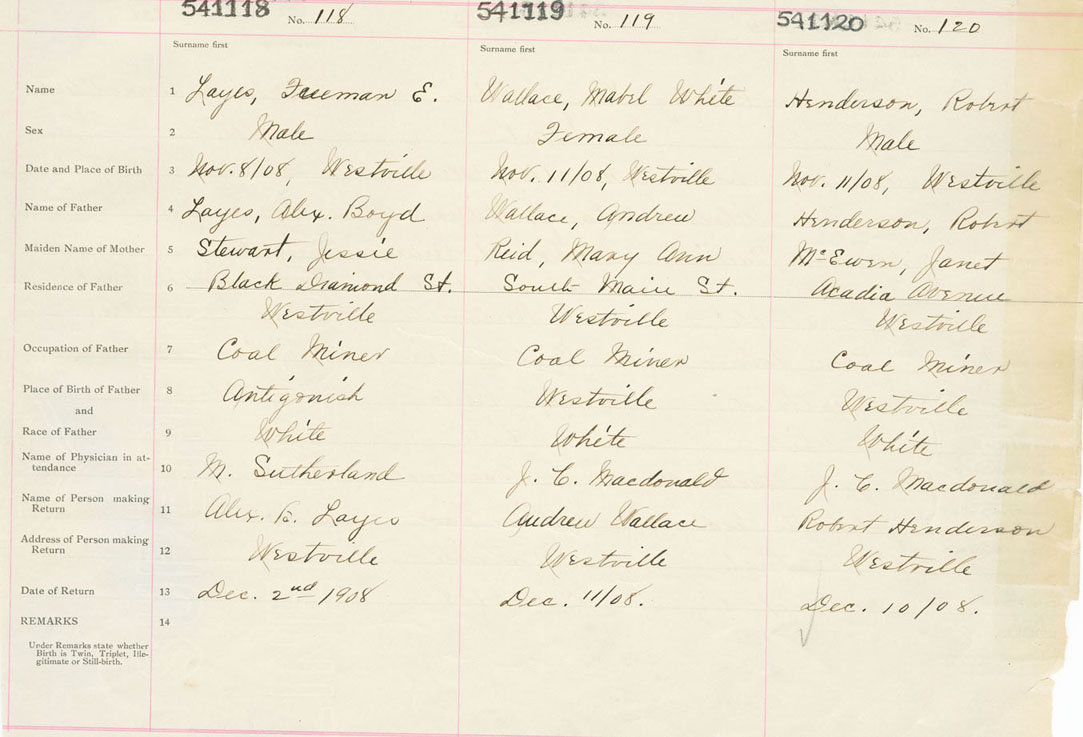 541118 No. 118
541119 No. 119
541120 No. 120
Surname first Surname first Surname first
Name 1 Layes, Freeman E. Wallace, Mabel White Henderson, Robert
Sex 2 Male Female Male
Date and Place of Birth 3 Nov. 8/08, Westville Nov. 11/08, Westville Nov. 11/08, Westville
Name of Father 4 Layes, Alex. Boyd Wallace, Andrew Henderson, Robert
Maiden Name of Mother 5 Stewart, Jessie Reid, Mary Ann McEwen, Janet
Residence of Father 6 Black Diamond St. South Main St. Acadia Avenue
Westville Westville Westville
Occupation of Father 7 Coal Miner Coal Miner Coal Miner
Place of Birth of Father 8 Antigonish Westville Westville
and
Race of Father 9 White White White
Name of Physician in at-
tendance 10 M. Sutherland J. C. Macdonald J. C. Macdonald
Name of Person making
Return 11 Alex. B. Layes Andrew Wallace Robert Henderson
Address of Person making
Return 12 Westville Westville Westville
Date of Return 13 Dec. 2nd 1908 Dec. 11/08. Dec. 10/08.
REMARKS 14
Under Remarks state whether
Birth is Twin, Triplet, Ille-
gitimate or Still-birth.